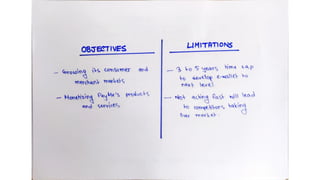 OBJECTIVES
- Growing its consumer and
merchant markets
- Monetising PayMe's products
and services
LIMITATIONS
- 3 to 5 years time gap
to develop e-wallet to
next level
- Not acting fast will lead
to competitors taking
over market.